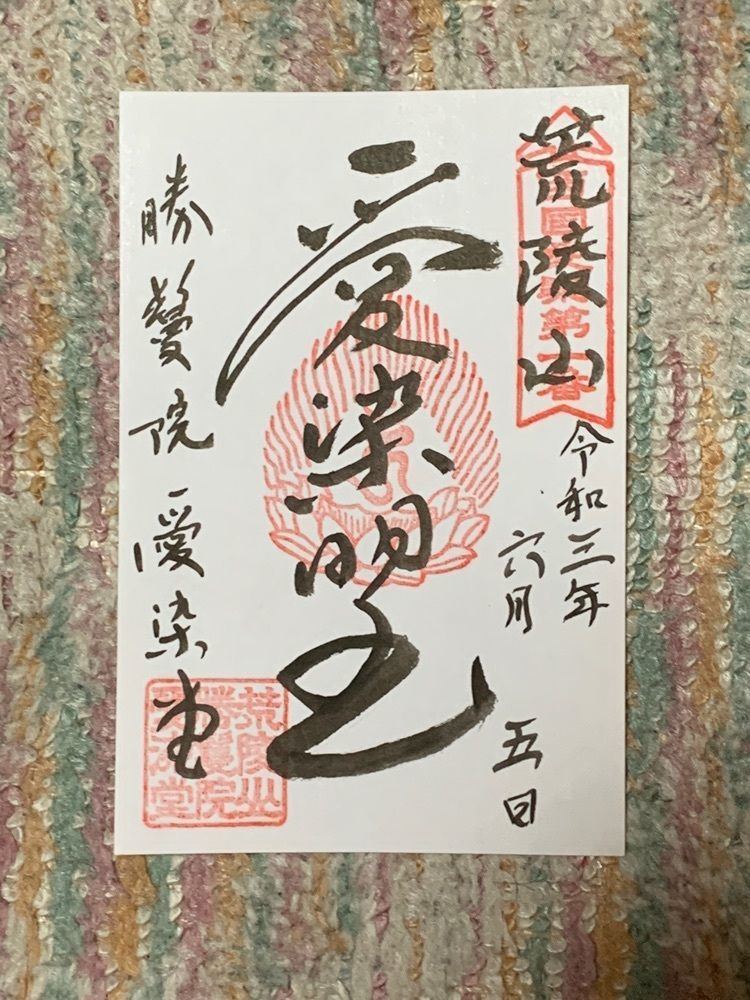 荒陵山
令和三年
六月
五日
愛染明王
勝鬘院愛染堂
荒陵山
勝鬘院
愛染堂